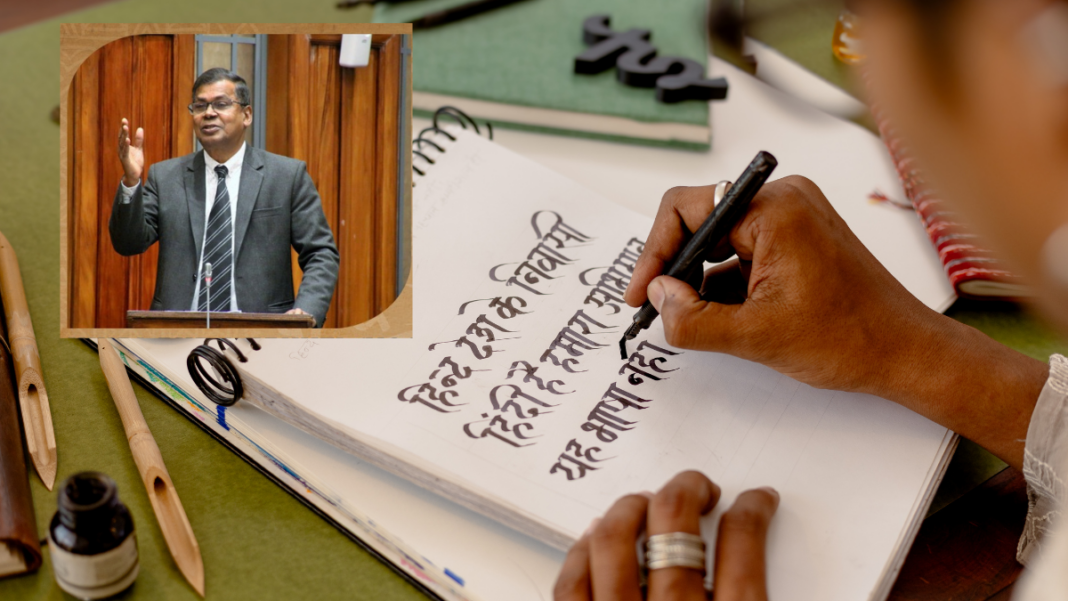 हिन्द देश के निवासी
हिंदी है हमारा अभिमान
यह भाषा नहीं